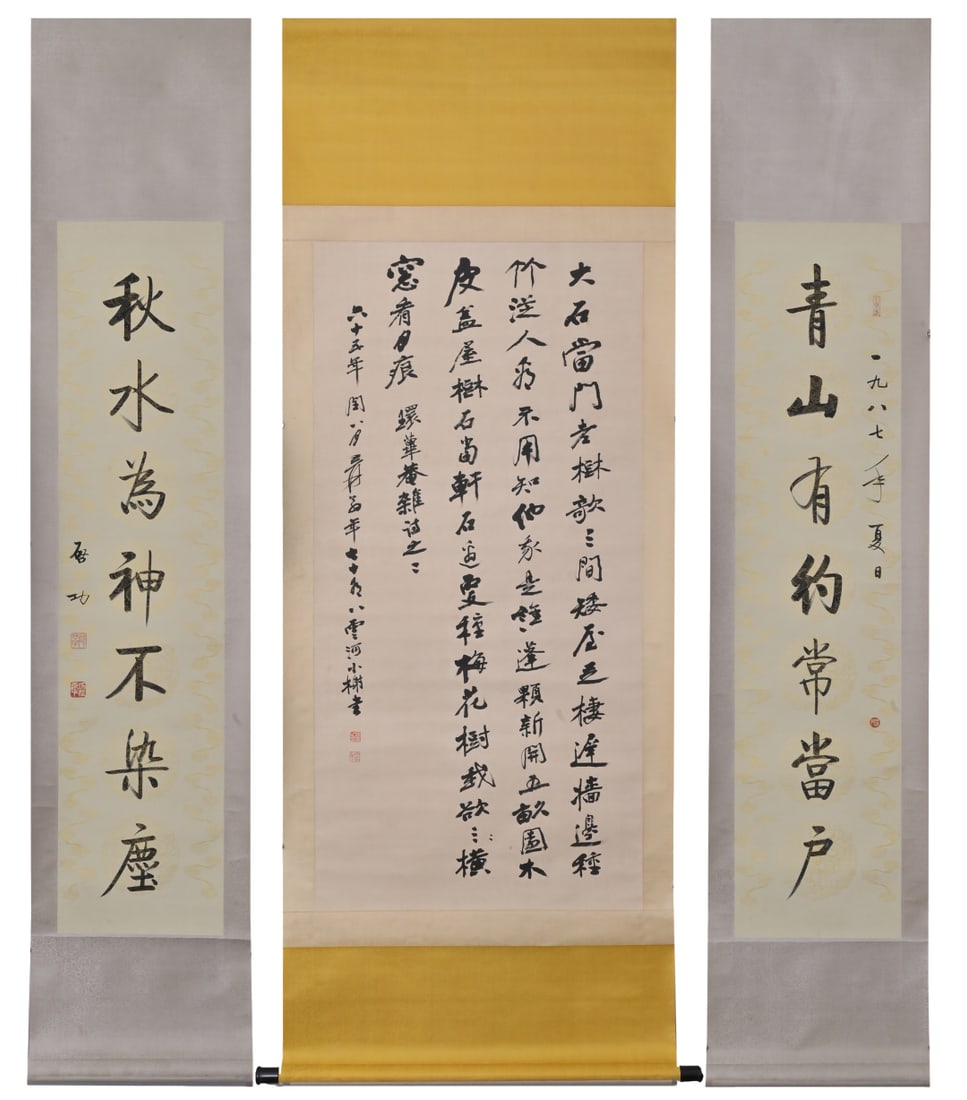 一九八七年夏日
青山有約常當户
大石當門老樹欹三間矮屋足棲遲墻邊種
竹從人看不用知他家是誰蓬顆新開五畝園木
皮蓋屋樹石當軒石邊更種梅花樹 欲橫
窓看月痕 環蓽菴雜詩之二
六十五年閏八月爰翁年七十有八雲河小榭書
秋水為神不染塵
启功